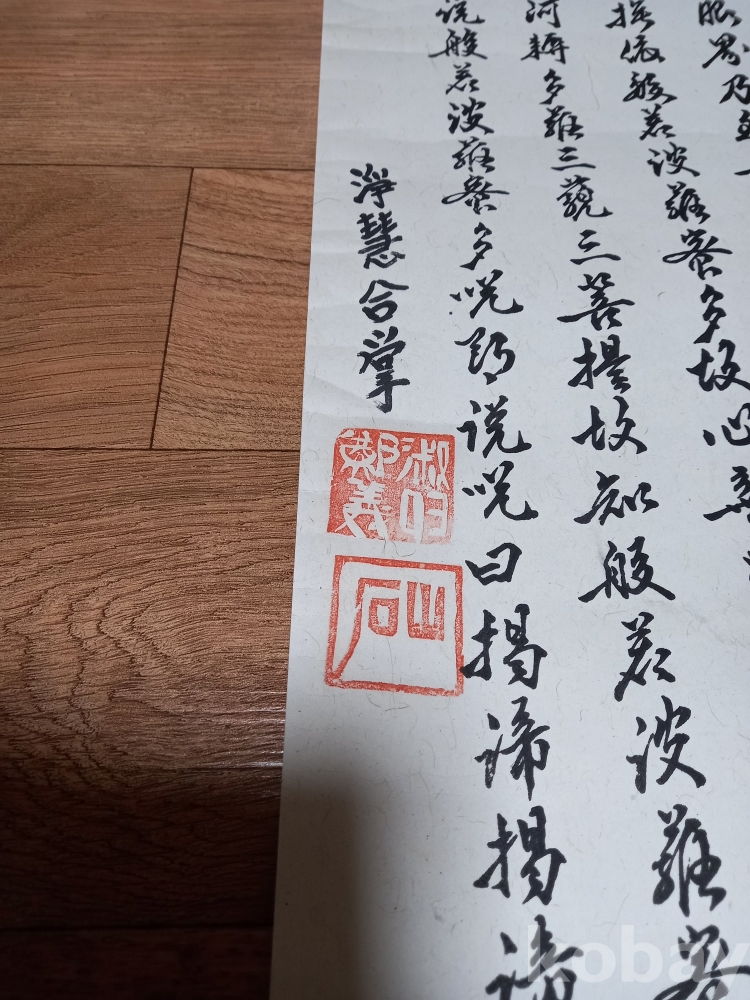 眼界乃至
依般若波羅蜜多故心無
河耨多羅三藐三菩提故知般若波羅蜜
说般若波羅蜜多呪即说呪曰揭諦揭諦
淨慧合掌
淑
鄭義
山石
kobay